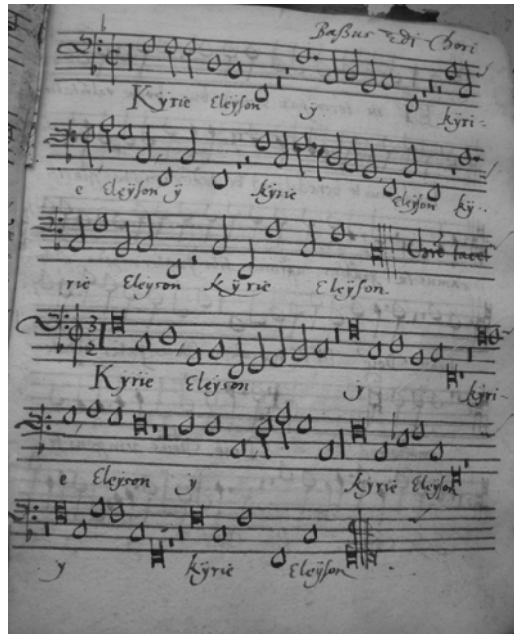 Baßus 2di Chori
Kÿrie Eleÿson ÿ kÿri-
e Eleÿson ÿ kÿrie Eleÿson kÿ-
rie Eleÿson kÿrie Eleÿson. tacet
3
2
Kÿrie Eleÿson ÿ kÿri-
e Eleyson ÿ kÿrie Eleÿson
y kÿrie Eleÿson